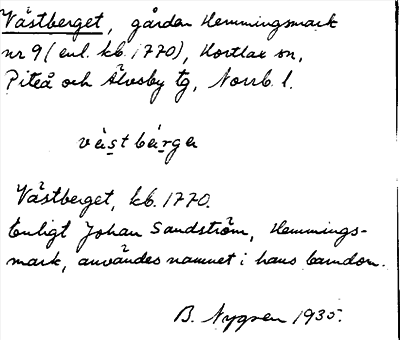 Västberget, gården Hemmingsmark
nr 9 (enl. kb. 1770), Hortlax sn,
Piteå och Älvsby tg, Norrb. l.
västbärga
Västberget, kb. 1770.
Enligt Johan Sandström, Hemmings-
mark, användes namnet i hans barndom.
B. Nygren 1935.